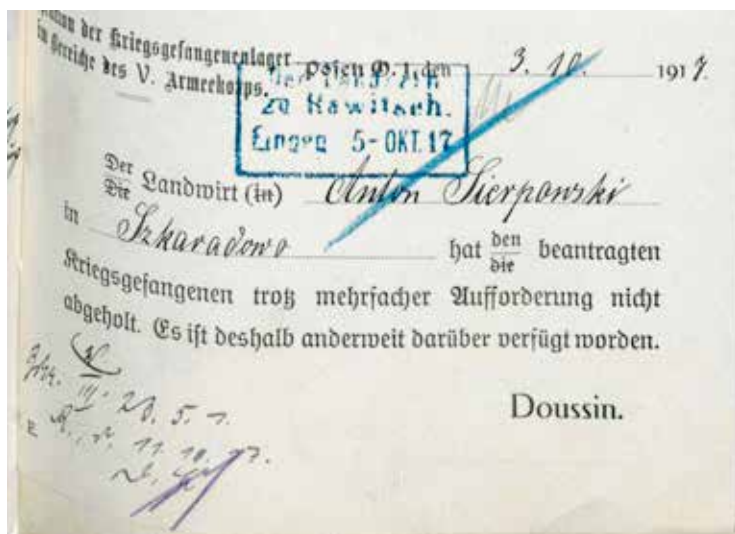 der Kriegsgefangenenlager
Bereiche des V. Armeekorps.
Posen O. 1, den 3. 10. 1917.
Der Landrat
zu Rawitsch.
Eingeg 5-OKT.17
Der
Die Landwirt (in) Anton Sierpowski
in Szkaradowo hat den
die beantragten
Kriegsgefangenen trotz mehrfacher Aufforderung nicht
abgeholt. Es ist deshalb anderweit darüber verfügt worden.
Doussin.
III. 20. 5. 1.
11. 10. 17.